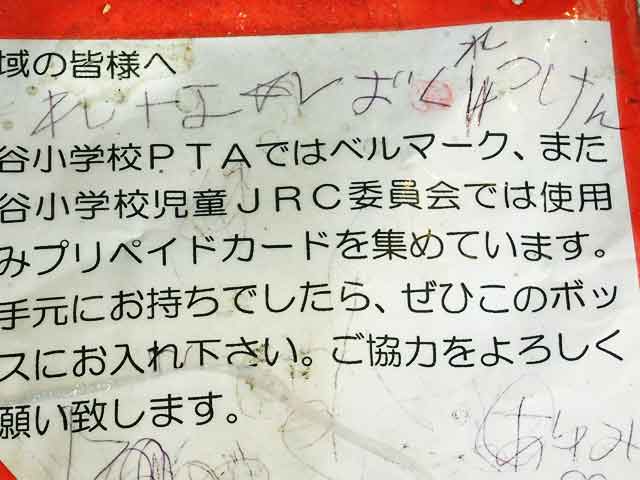 域の皆様へ
谷小学校PTAではベルマーク、また
谷小学校児童JRC委員会では使用
みプリペイドカードを集めています。
手元にお持ちでしたら、ぜひこのボッ
スにお入れ下さい。ご協力をよろしく
願い致します。
あゆみ